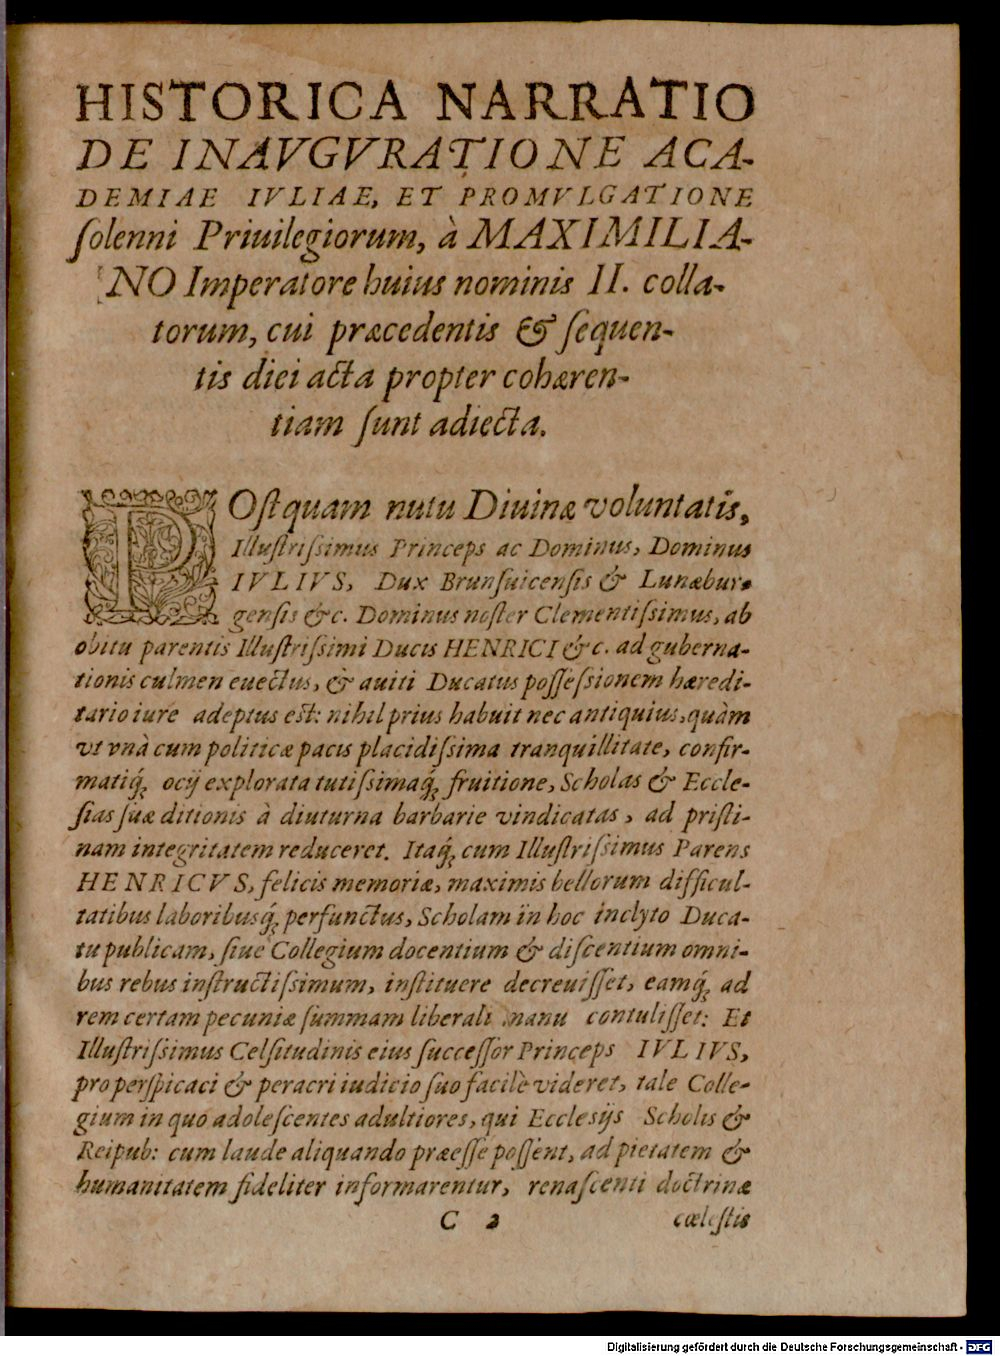 HISTORICA NARRATIO
DE INAVGVRATIONE ACA-
DEMIAE IVLIAE, ET PROMVLGATIONE
ſolenni Priuilegiorum, à MAXIMILIA-
NO Imperatore huius nominis II. colla-
torum, cui præcedentis & ſequen-
tis diei acta propter cohæren-
tiam ſunt adiecta.
POſtquam nutu Diuinæ voluntatis,
Illuſtriſsimus Princeps ac Dominus, Dominus
IVLIVS, Dux Brunſuicenſis & Lunæbur-
genſis &c. Dominus noſter Clementiſsimus, ab
obitu parentis Illuſtriſsimi Ducis HENRICI &c. ad guberna-
tionis culmen euectus, & auiti Ducatus poſſeſsionem hæredi-
tario iure adeptus est: nihil prius habuit nec antiquius, quàm
vt vnà cum politicæ pacis placidiſsima tranquillitate, confir-
matiq́ꝫ ocij explorata tutiſsimaq́ꝫ fruitione, Scholas & Eccle-
ſias ſuæ ditionis à diuturna barbarie vindicatas, ad priſti-
nam integritatem reduceret. Itaq́ꝫ cum Illuſtriſsimus Parens
HENRICVS, felicis memoriæ, maximis bellorum difficul-
tatibus laboribusq́ꝫ perfunctus, Scholam in hoc inclyto Duca-
tu publicam, ſiue Collegium docentium & diſcentium omni-
bus rebus inſtructiſsimum, inſtituere decreuiſſet, eamq́ꝫ ad
rem certam pecuniæ ſummam liberali manu contuliſſet: Et
Illuſtriſsimus Celſitudinis eius ſucceſſor Princeps IVLIVS,
pro perſpicaci & peracri iudicio ſuo facilè videret, tale Colle-
gium in quo adoleſcentes adultiores, qui Eccleſijs Scholis &
Reipub: cum laude aliquando præeſſe poſſent, ad pietatem &
humanitatem fideliter informarentur, renaſcenti doctrinæ
C 2 cœleſtis
Digitalisierung gefördert durch die Deutsche Forschungsgemeinschaft - DFG